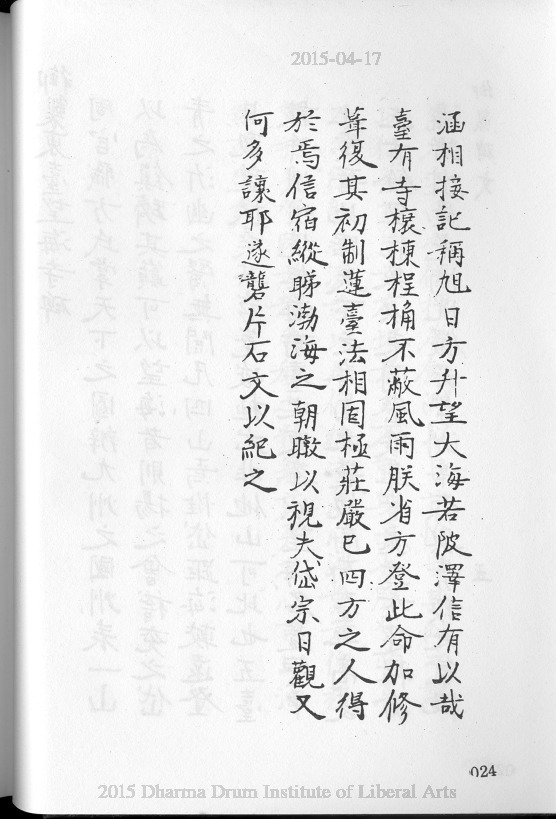 2015-04-17
涵相接記稱旭日方升望大海若陂澤信有以哉
臺有寺榱棟桯桷不蔽風雨朕省方登此命加修
葺復其初制蓮臺法相固極莊嚴已四方之人得
於焉信宿縱睇渤海之朝暾以視夫岱宗日觀又
何多讓耶遂礱片石文以紀之
024
2015 Dharma Drum Institute of Liberal Arts